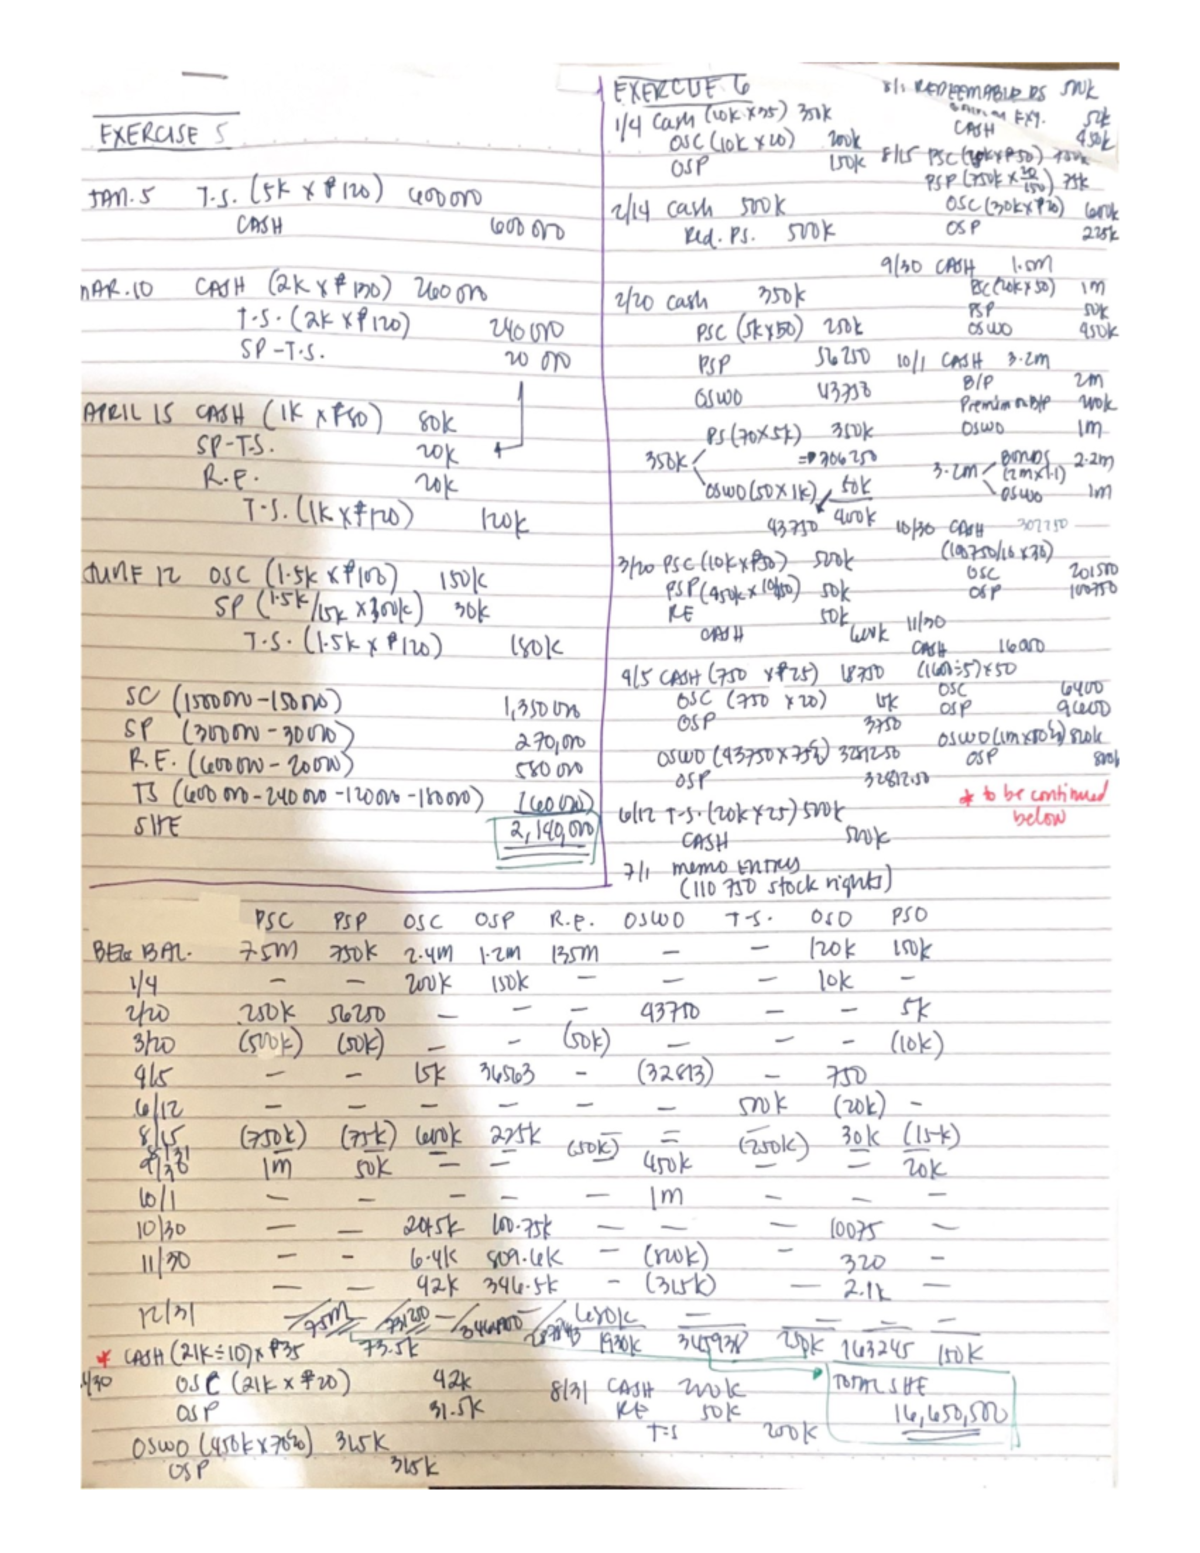 EXERCISE 5
JAN. 5 T.S. (5K X ₱120) 600 000
CASH 600 000
MAR. 10 CASH (2K X ₱130) 260 000
T.S. (2K X ₱120) 240 000
SP-T.S. 20 000
APRIL 15 CASH (1K X ₱80) 80K
SP-T.S. 20K
R.E. 20K
T.S. (1K X ₱120) 120K
JUNE 12 OSC (1.5K X ₱100) 150K
SP (1.5K/15K X 300K) 30K
T.S. (1.5K X ₱120) 180K
SC (1500 000 - 150 000) 1,350 000
SP (300 000 - 30 000) 270,000
R.E. (600 000 - 20 000) 580 000
TS (600 000 - 240 000 - 120 000 - 180 000) (60 000)
SHE 2,140,000
EXERCISE 6
1/4 Cash (10K X 35) 350K
OSC (10K X 20) 200K
OSP 150K
2/14 Cash 500K
Red. P.S. 500K
2/20 cash 350K
PSC (5K X 50) 250K
PSP 56250
OSWO 43750
350K PS (70 X 5K) 350K
=> 306250
OSWO (50 X 1K) 50K
43750 400K
3/20 PSC (10K X ₱50) 500K
PSP (450K X 10/90) 50K
RE 50K
CASH 600K
4/5 CASH (750 X ₱25) 18750
OSC (750 X 20) 15K
OSP 3750
OSWO (43750 X 75%) 32812.50
OSP 32812.50
6/12 T.S. (20K X 25) 500K
CASH 500K
7/1 memo ENTRY
(110 750 stock rights)
8/1 REDEEMABLE PS 500K
EXP. 50K
CASH 450K
8/15 PSC 750K
PSP 75K
OSC (30K X ₱20) 600K
OSP 225K
9/30 CASH 1.5M
PSC (20K X 50) 1M
PSP 50K
OSWO 450K
10/1 CASH 3.2M
B/P 2M
Premium on B/P 200K
OSWO 1M
3.2M BONDS 2.2M
(2M X 1.1)
OSWO 1M
10/30 CASH 302250
(100750/10 X 30)
OSC 201500
OSP 100750
11/30
CASH 16000
(1600 ÷ 5) X 50
OSC 6400
OSP 9600
OSWO (1M X 80%) 800K
OSP 800K
* to be continued
below
PSC PSP OSC OSP R.E. OSWO T.S. OSO PSO
BEG BAL. 7.5M 750K 2.4M 1.2M 135M - - 120K 150K
1/4 - - 200K 150K - - - 10K -
2/20 250K 56250 - - - 43750 - - 5K
3/20 (500K) (50K) - - (50K) - - - (10K)
4/5 - - 15K 36563 - (32813) - 750
6/12 - - - - - - 500K (20K) -
8/15 (750K) (75K) 600K 225K - = - 30K (15K)
8/31 (50K) (250K)
9/30 1M 50K - - 450K - - 20K
10/1 - - - - - 1M - - -
10/30 - - 201.5K 100.75K - - - 10075 -
11/30 - - 6.4K 809.6K - (800K) - 320 -
- - 42K 346.5K - (315K) - 2.1K -
12/31 7.5M 731250 680K - - - -
73.5K 1930K 345938 250K 163245 150K
* CASH (21K ÷ 10) X ₱35
OSC (21K X ₱20) 42K
OSP 31.5K
OSWO (450K X 70%) 315K
OSP 315K
8/31 CASH 200K
RE 50K
T.S 200K
TOTAL SHE
16,650,500